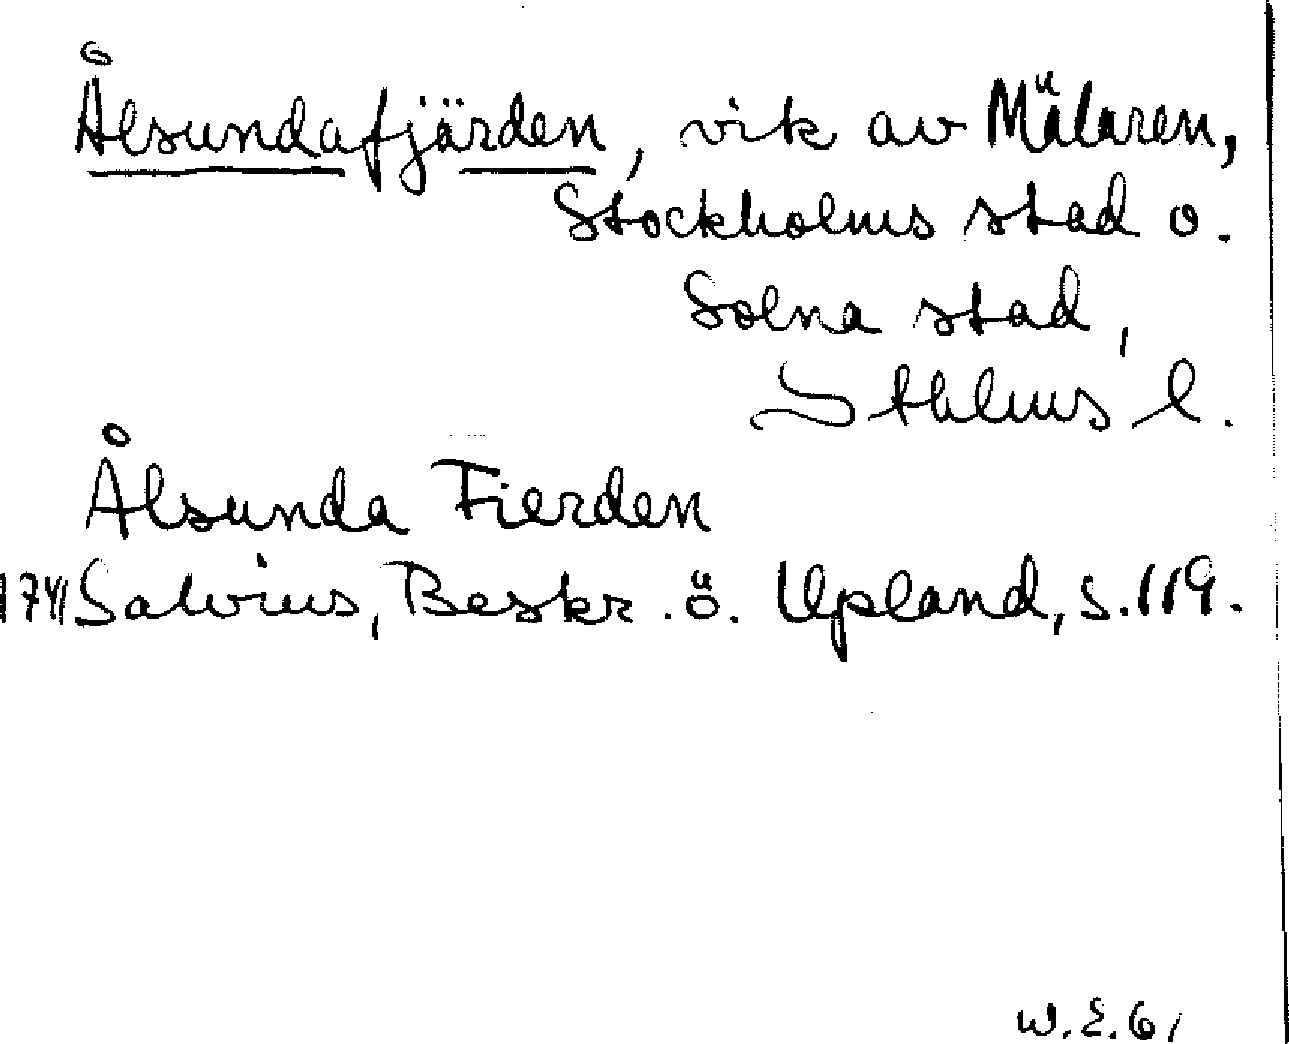 Ålsundafjärden, vik av Mälaren,
Stockholms stad o.
Solna stad,
Sthlms l.
Ålsunda Fierden
1741 Salvius, Beskr. ö. Upland, s. 119.
W. E. 61